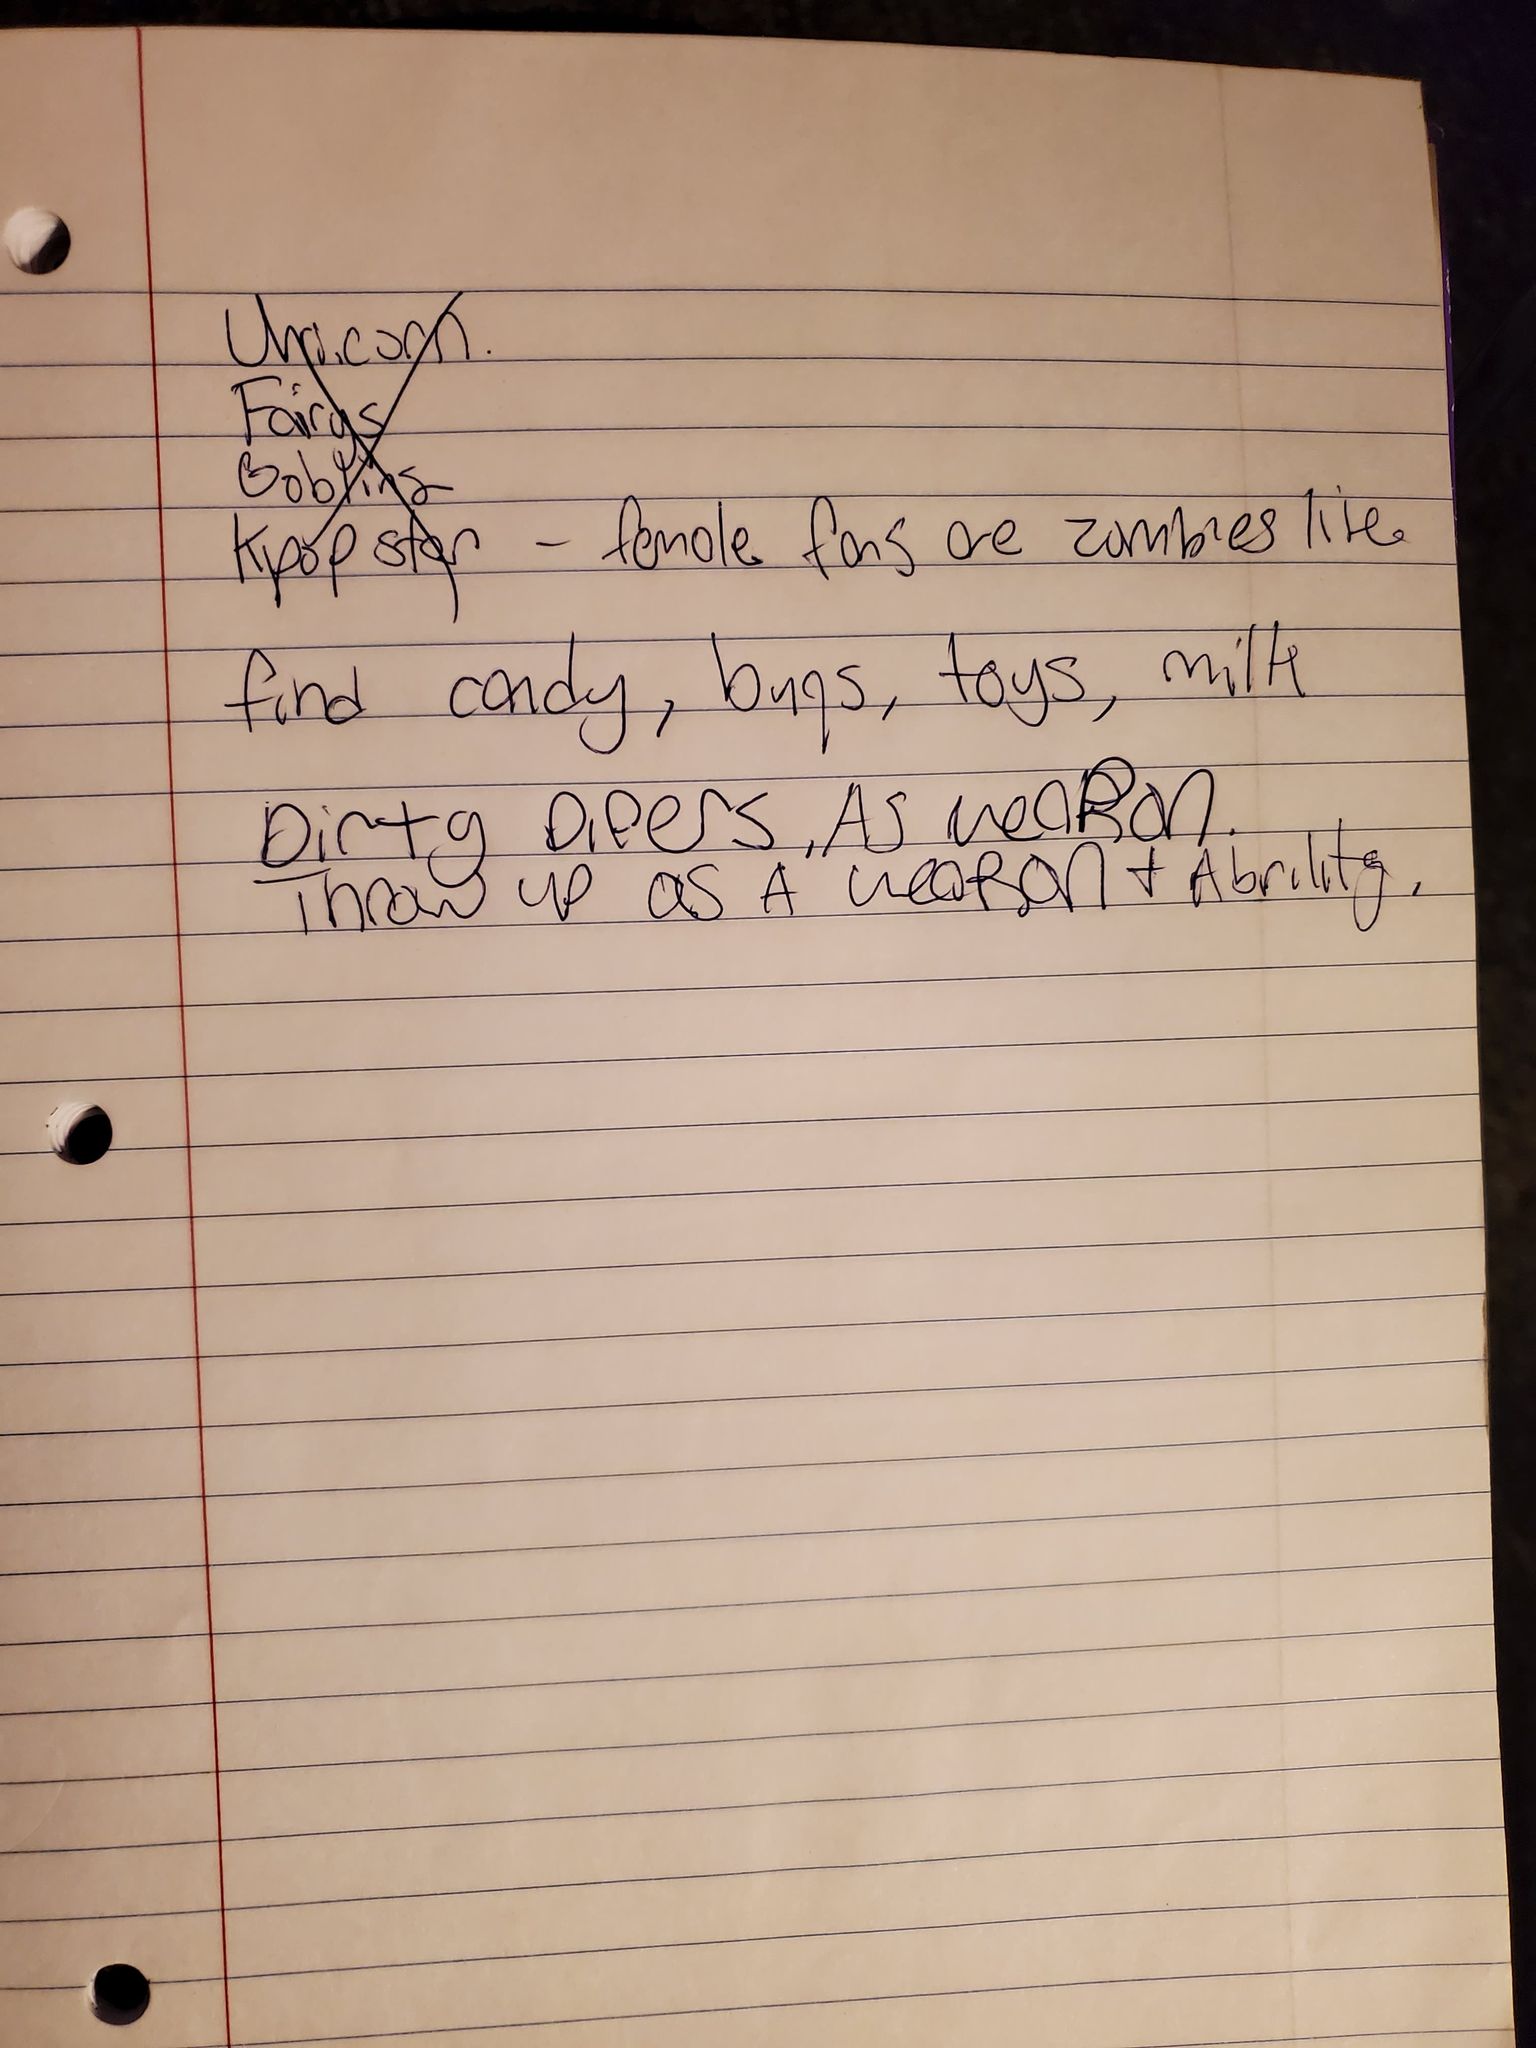 Unicorn.
Fairys
Goblins
Kpop star - female fans are zombies like
find candy, bugs, toys, milk
Dirty DiPers, As weaPon.
Throw up as A weaPon + Abrility.